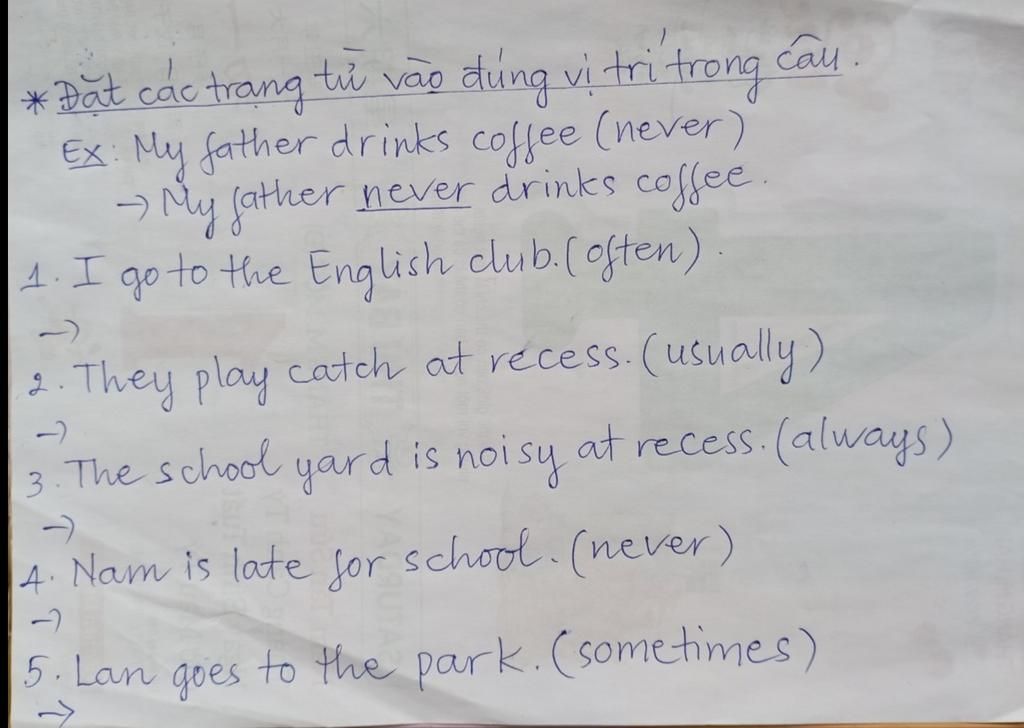 * Đặt các trạng từ vào đúng vị trí trong câu.
Ex: My father drinks coffee (never)
→ My father never drinks coffee.
1. I go to the English club. (often).
→
2. They play catch at recess. (usually)
→
3. The school yard is noisy at recess. (always)
→
4. Nam is late for school. (never)
→
5. Lan goes to the park. (sometimes)
→